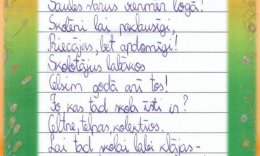 Saules starus vienmēr logā!
Skolēni lai paklausīgi,
Priecājas, bet apdomīgi!
Skolotājus labākos
Celsim godā arī tos!
Jo kas tad skola īsti ir?
Celtne, telpas, kolektīvs.
Lai tad skolai labi klājas-